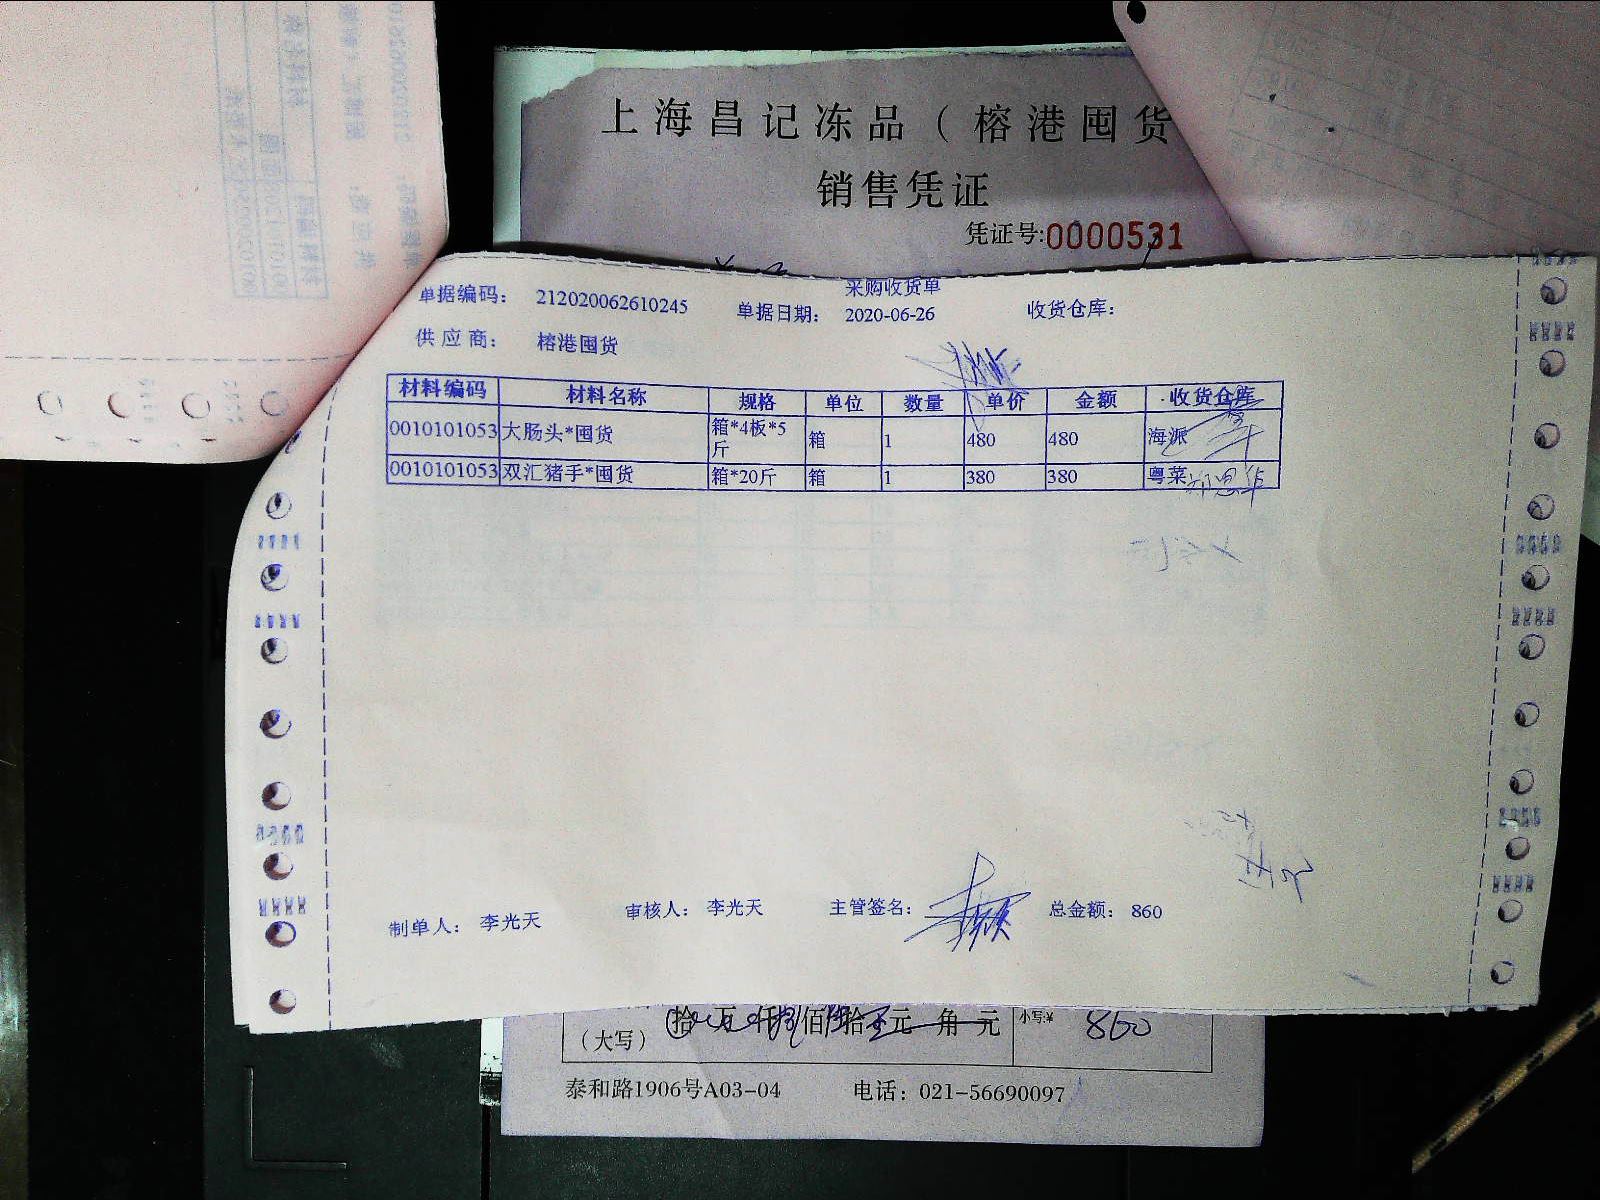 上海昌记冻品（榕港囤货
销售凭证
凭证号:0000531
采购收货单
单据编码： 212020062610245 单据日期： 2020-06-26 收货仓库：
供应商： 榕港囤货
材料编码 材料名称 规格 单位 数量 单价 金额 收货仓库
0010101053 大肠头*囤货 箱*4板*5斤 箱 1 480 480 海派
0010101053 双汇猪手*囤货 箱*20斤 箱 1 380 380 粤菜
制单人： 李光天 审核人： 李光天 主管签名： 总金额： 860
（大写） 拾 万 仟 佰 拾 元 角 元 小写:¥ 860
泰和路1906号A03-04 电话：021-56690097